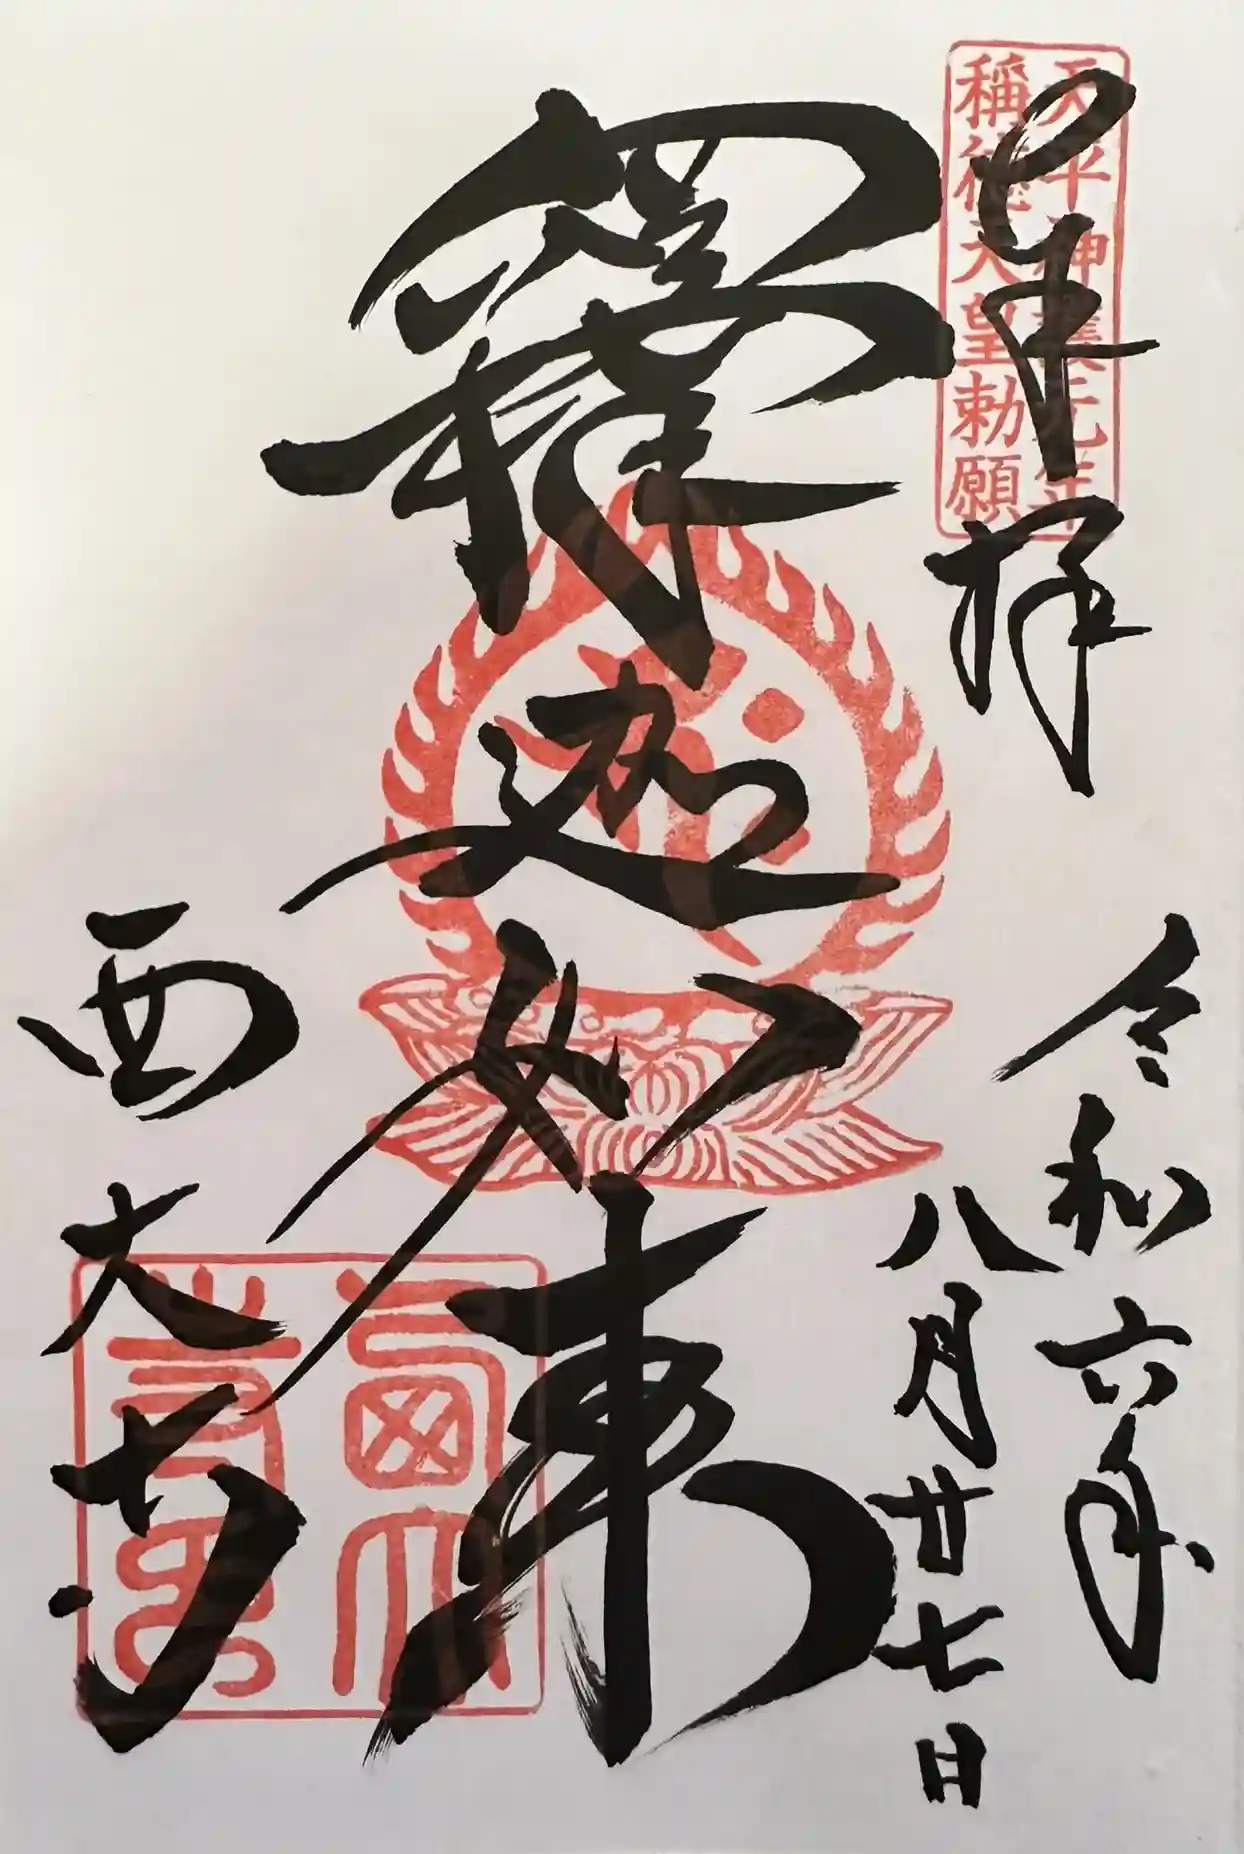 奉拝
天平神護元年
稱徳天皇勅願
令和六年
八月廿七日
釋迦如来
西大寺